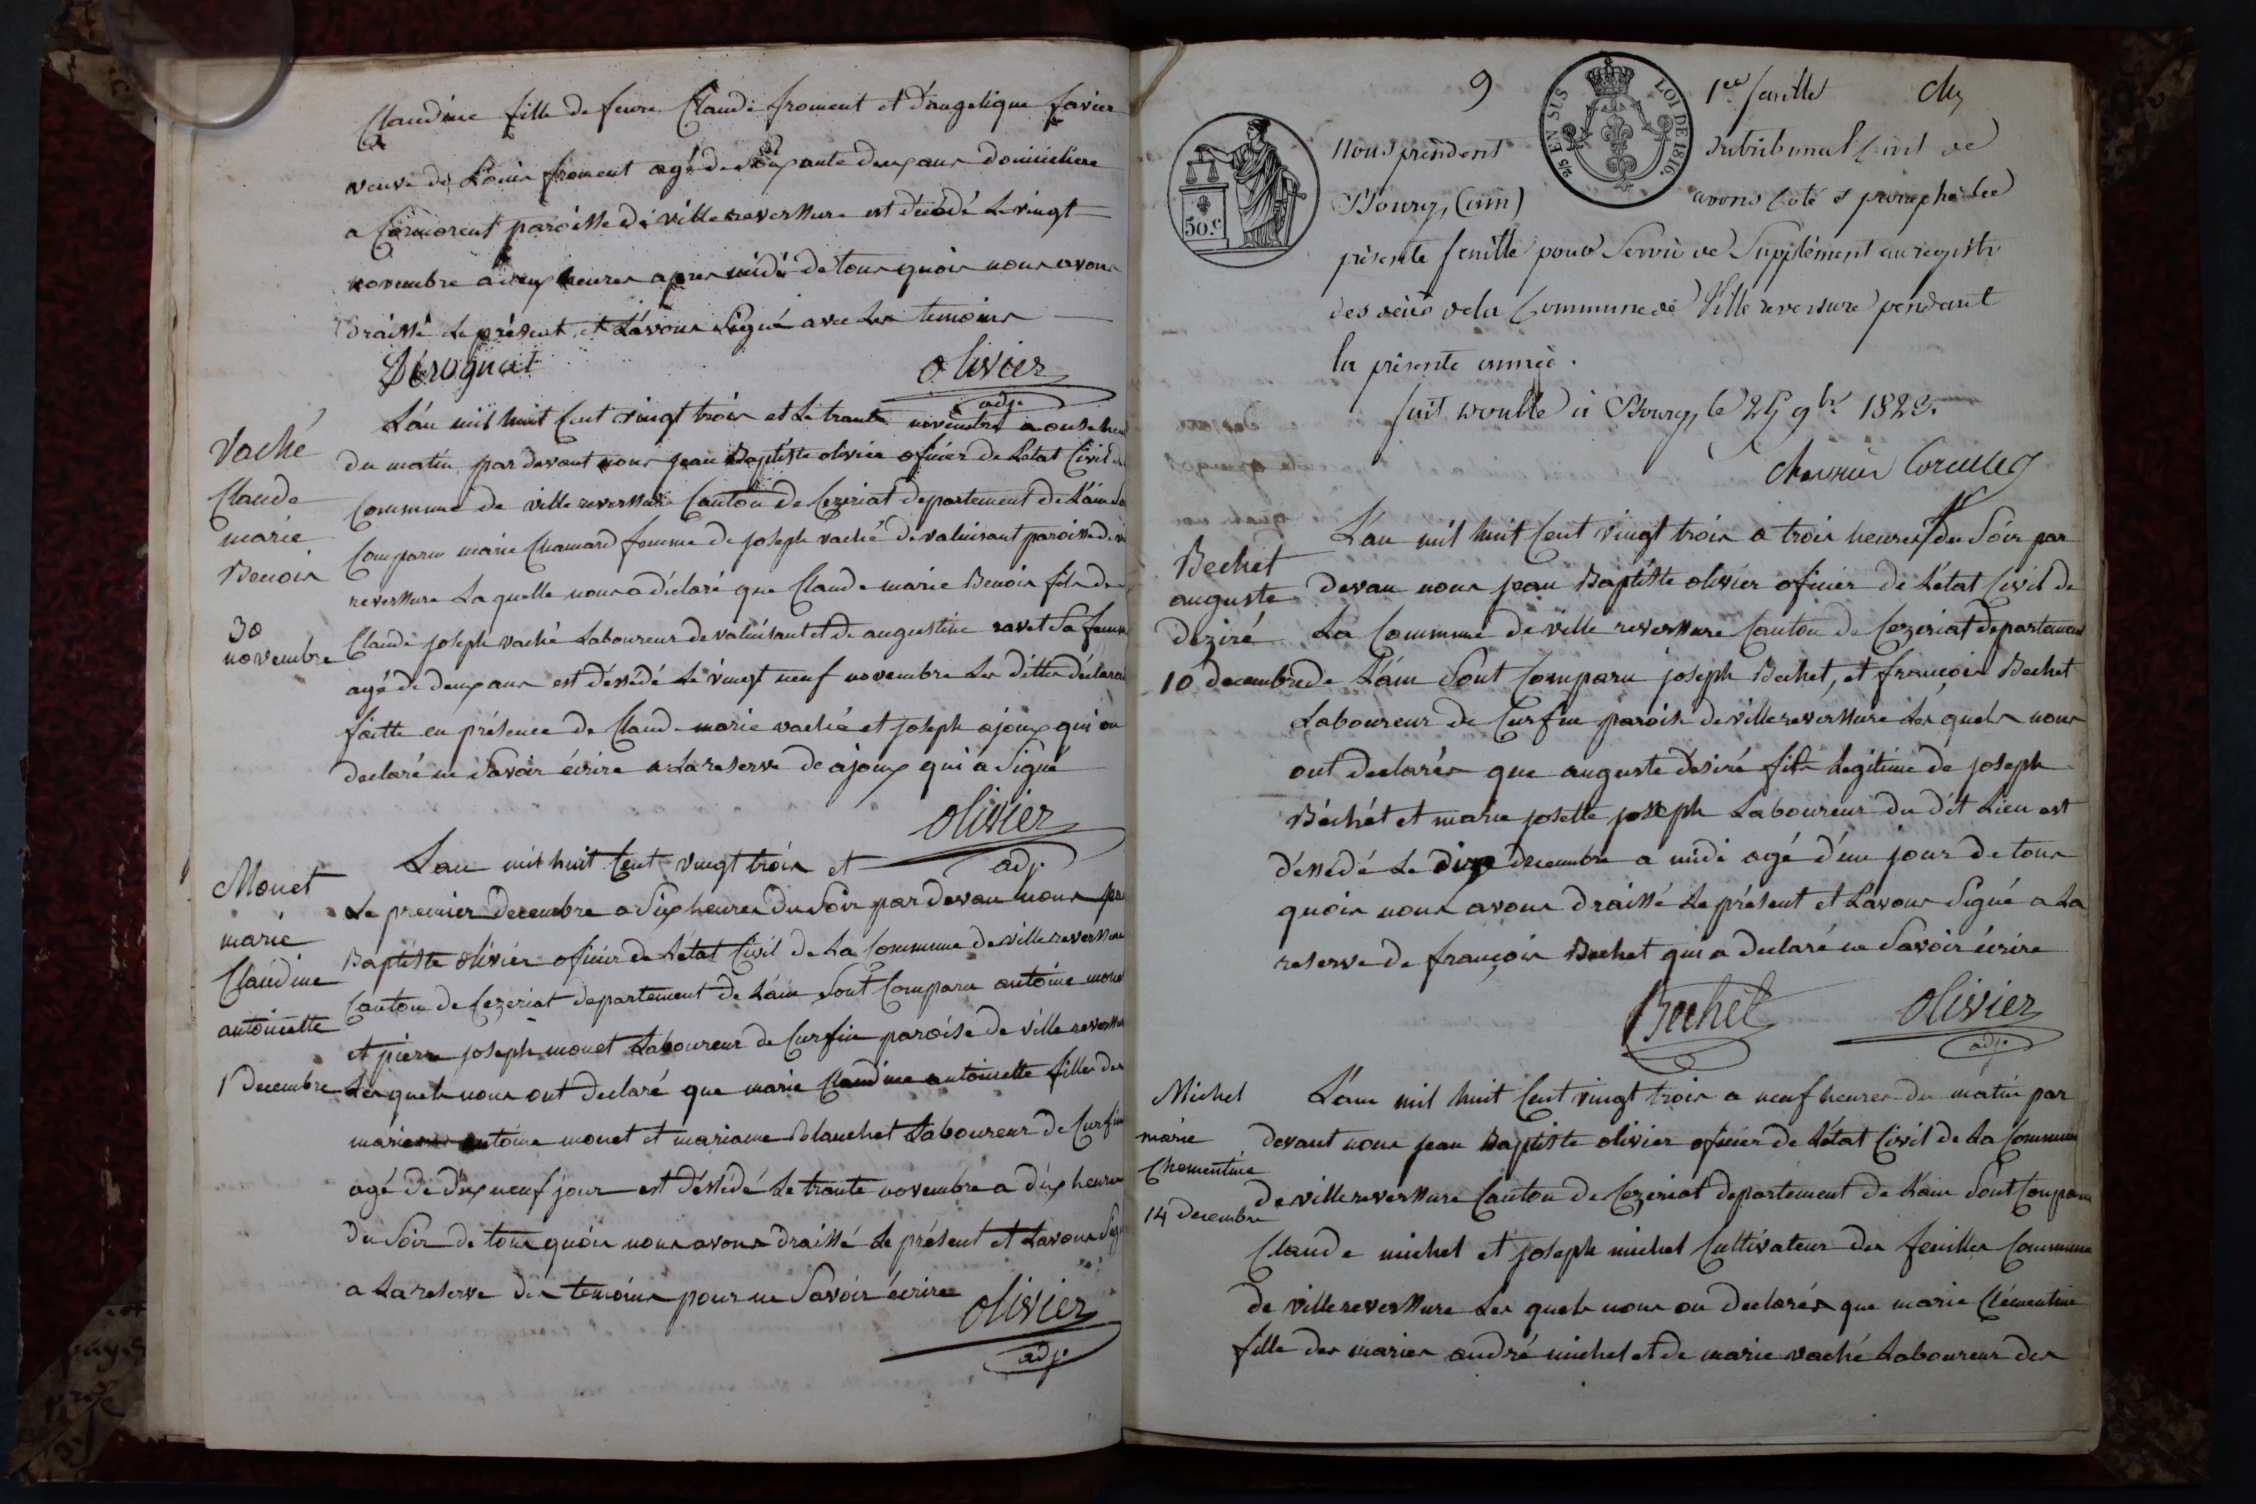 Claudine fille de feure Claude froment et d'angelique favier
veuve de Louis froment agé de soixante deux ans domiciliere
a Cormorent paroisse de villereverssure est décédé Le vingt
novembre a deux heures apres midi de tous quoir nous avons
draissé Le présent et L'avons Signé avec Les temoins
Dérognat
olivier
adj.
Vaché
Claude
marie
Benoir
30
novembre
L'an mil huit Cent vingt trois et Le trante novembre a onse heu
du matin par devant nous jean Baptiste olivier oficier de L'état Civil de
Commune de ville reverssure Canton de Cezeriat departement de L'ain So
Comparu marie Chamard femme de joseph vaché de valuisant paroisse de vi
reverssure Laquelle nous a déclaré que Claude marie Benoir fils de
Claude joseph vaché Laboureur de valuisant et de augustine ravet Sa femme
agé de deux ans est dessédé Le vingt neuf novembre Les dittes déclara
faitte en présence de Claude marie vaché et joseph ajoux qui on
declaré ne Savoir écrire a La reserve de ajoux qui a Signé
olivier
adj.
Monet
marie
Claudine
antoinette
1 Decembre
L'an mil huit Cent vingt trois et
Le premier decembre a Six heures du Soir par devan nous jea
Baptiste olivier oficier de L'état Civil de La Commune de ville reverssure
Canton de Cezeriat departement de L'ain Sont Comparu antoine mone
et pierre joseph monet Laboureur de Curfin paroise de ville reverssu
Les quels nous ont declaré que marie Claudine antoinette filles des
maries antoine monet et mariane Blanchet Laboureur de Curfin
agé de dix neuf jour est dessédé Le trante novembre a dix heures
du Soir de tous quoir nous avons draissé Le présent et L'avons Sig
a La reserve des temoins pour ne Savoir écrire
olivier
adj.
9
1ere feuille
50.c
5/5 EN SUS LOI DE 1816.
Nous président du tribunal Civil de
Bourg, (ain) avons Coté et paraphé la
présente feuille pour Servir de Supplément au registre
des décès de la Commune de Ville reversure pendant
la présente année.
fait double à Bourg, le 25 9bre 1823.
Bechet
auguste
deziré
10 decembre
L'an mil huit Cent vingt trois a trois heures du Soir par
devan nous jean Baptiste olivier oficier de L'état Civil de
La Commune de ville reverssure Canton de Cezeriat departement
de L'ain Sont Comparu joseph Bechet, et françois Bechet
Laboureur de Curfin parois de villereverssure Les quels nous
ont declarés que auguste désiré fils Legitime de joseph
Béchét et marie josette joseph Laboureur du dit Lieu est
dessédé Le dix decembre a midi agé d'un jour de tous
quoir nous avons draissé Le présent et L'avons Signé a La
reserve de françois Bechet qui a declaré ne Savoir écrire
Bechet
olivier
adj.
Michel
marie
Clementine
14 decembre
L'an mil huit Cent vingt trois a neuf heures du matin par
devant nous jean Baptiste olivier oficier de L'état Civil de La Commune
de villereverssure Canton de Cezeriat departement de L'ain Sont Comparu
Claude michel et joseph michel Cultivateur des feuilles Commune
de villereverssure Les quels nous on declarés que marie Clémentine
fille des maries andré michel et de marie vaché Laboureur des